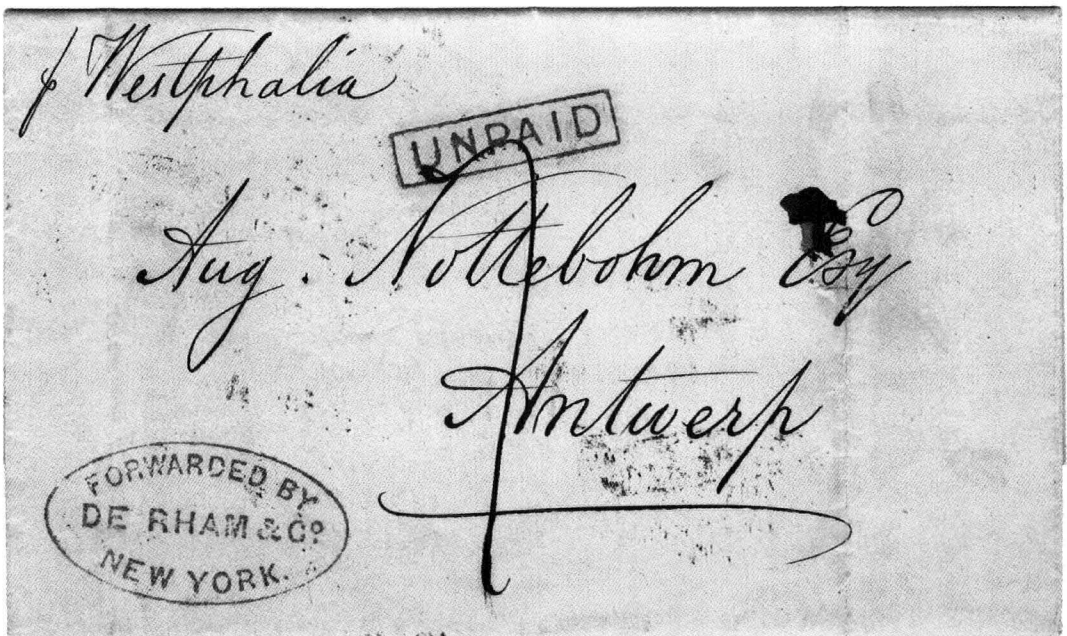 p Westphalia
UNPAID
Aug. Nottebohm Esq
Antwerp
FORWARDED BY
DE RHAM & Co
NEW YORK.